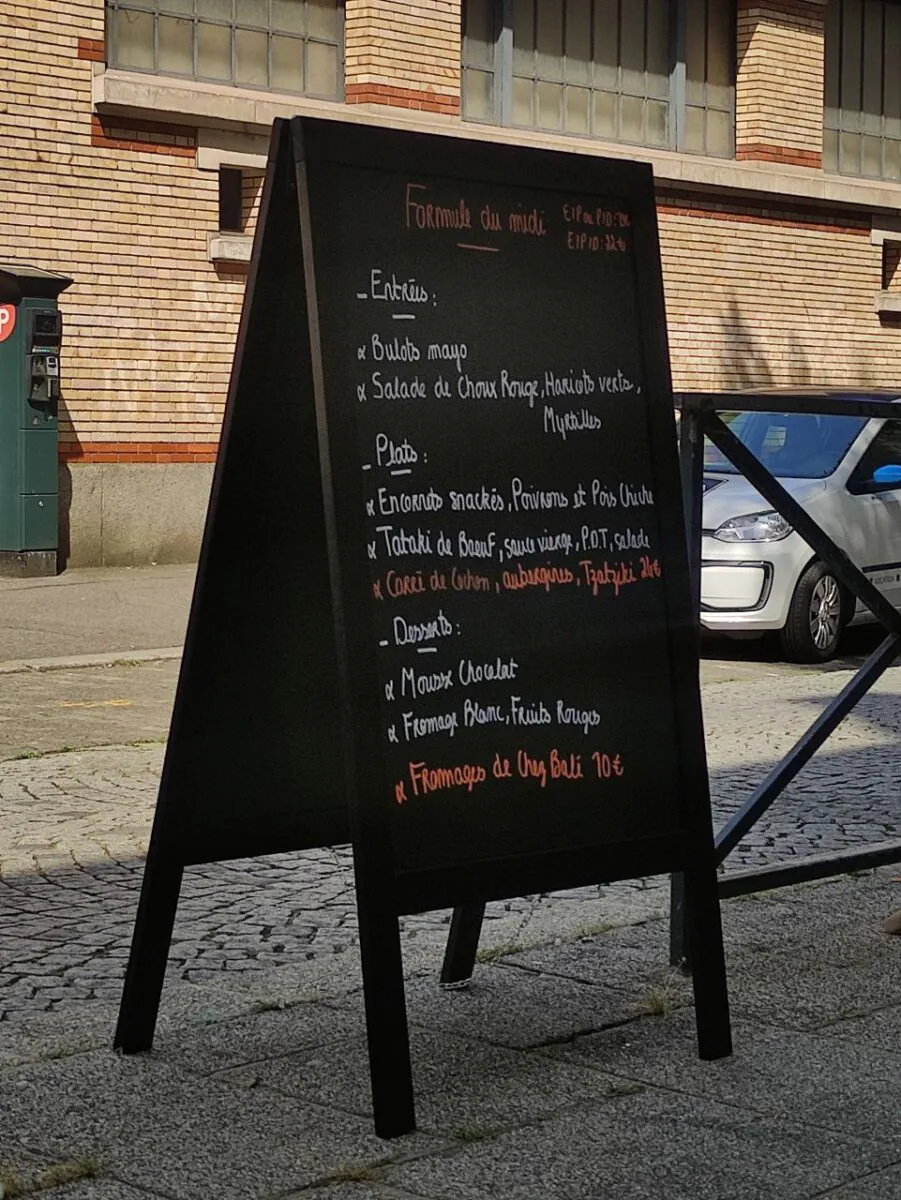 Formule du midi
E/P ou P/D :
E/P/D : 22€
- Entrées :
α Bulots mayo
α Salade de Choux Rouge, Haricots verts,
Myrtilles
- Plats :
α Encornets snackés, Poivrons et Pois Chiche
α Tataki de Bœuf, sauce vierge, P.D.T, salade
α Carré de Cochon, aubergines, Tzatziki 24€
- Desserts :
α Mousse Chocolat
α Fromage Blanc, Fruits Rouges
α Fromages de Chez Bali 10€
P
LOCATION